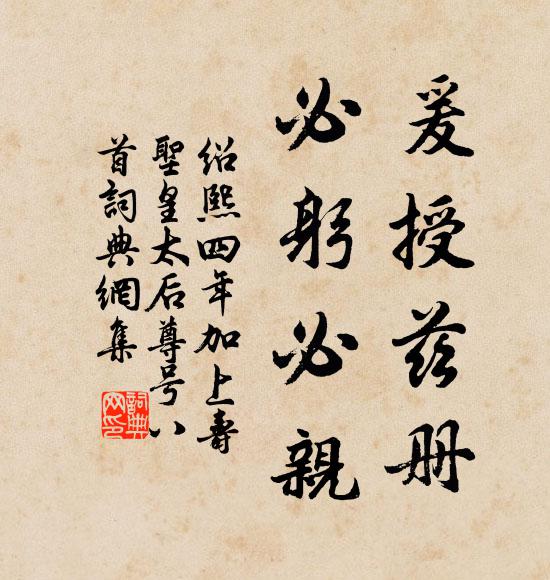 爰授茲册
必躬必親
绍熙四年加上壽
聖皇太后尊号八
首詞典網集
詞典网印